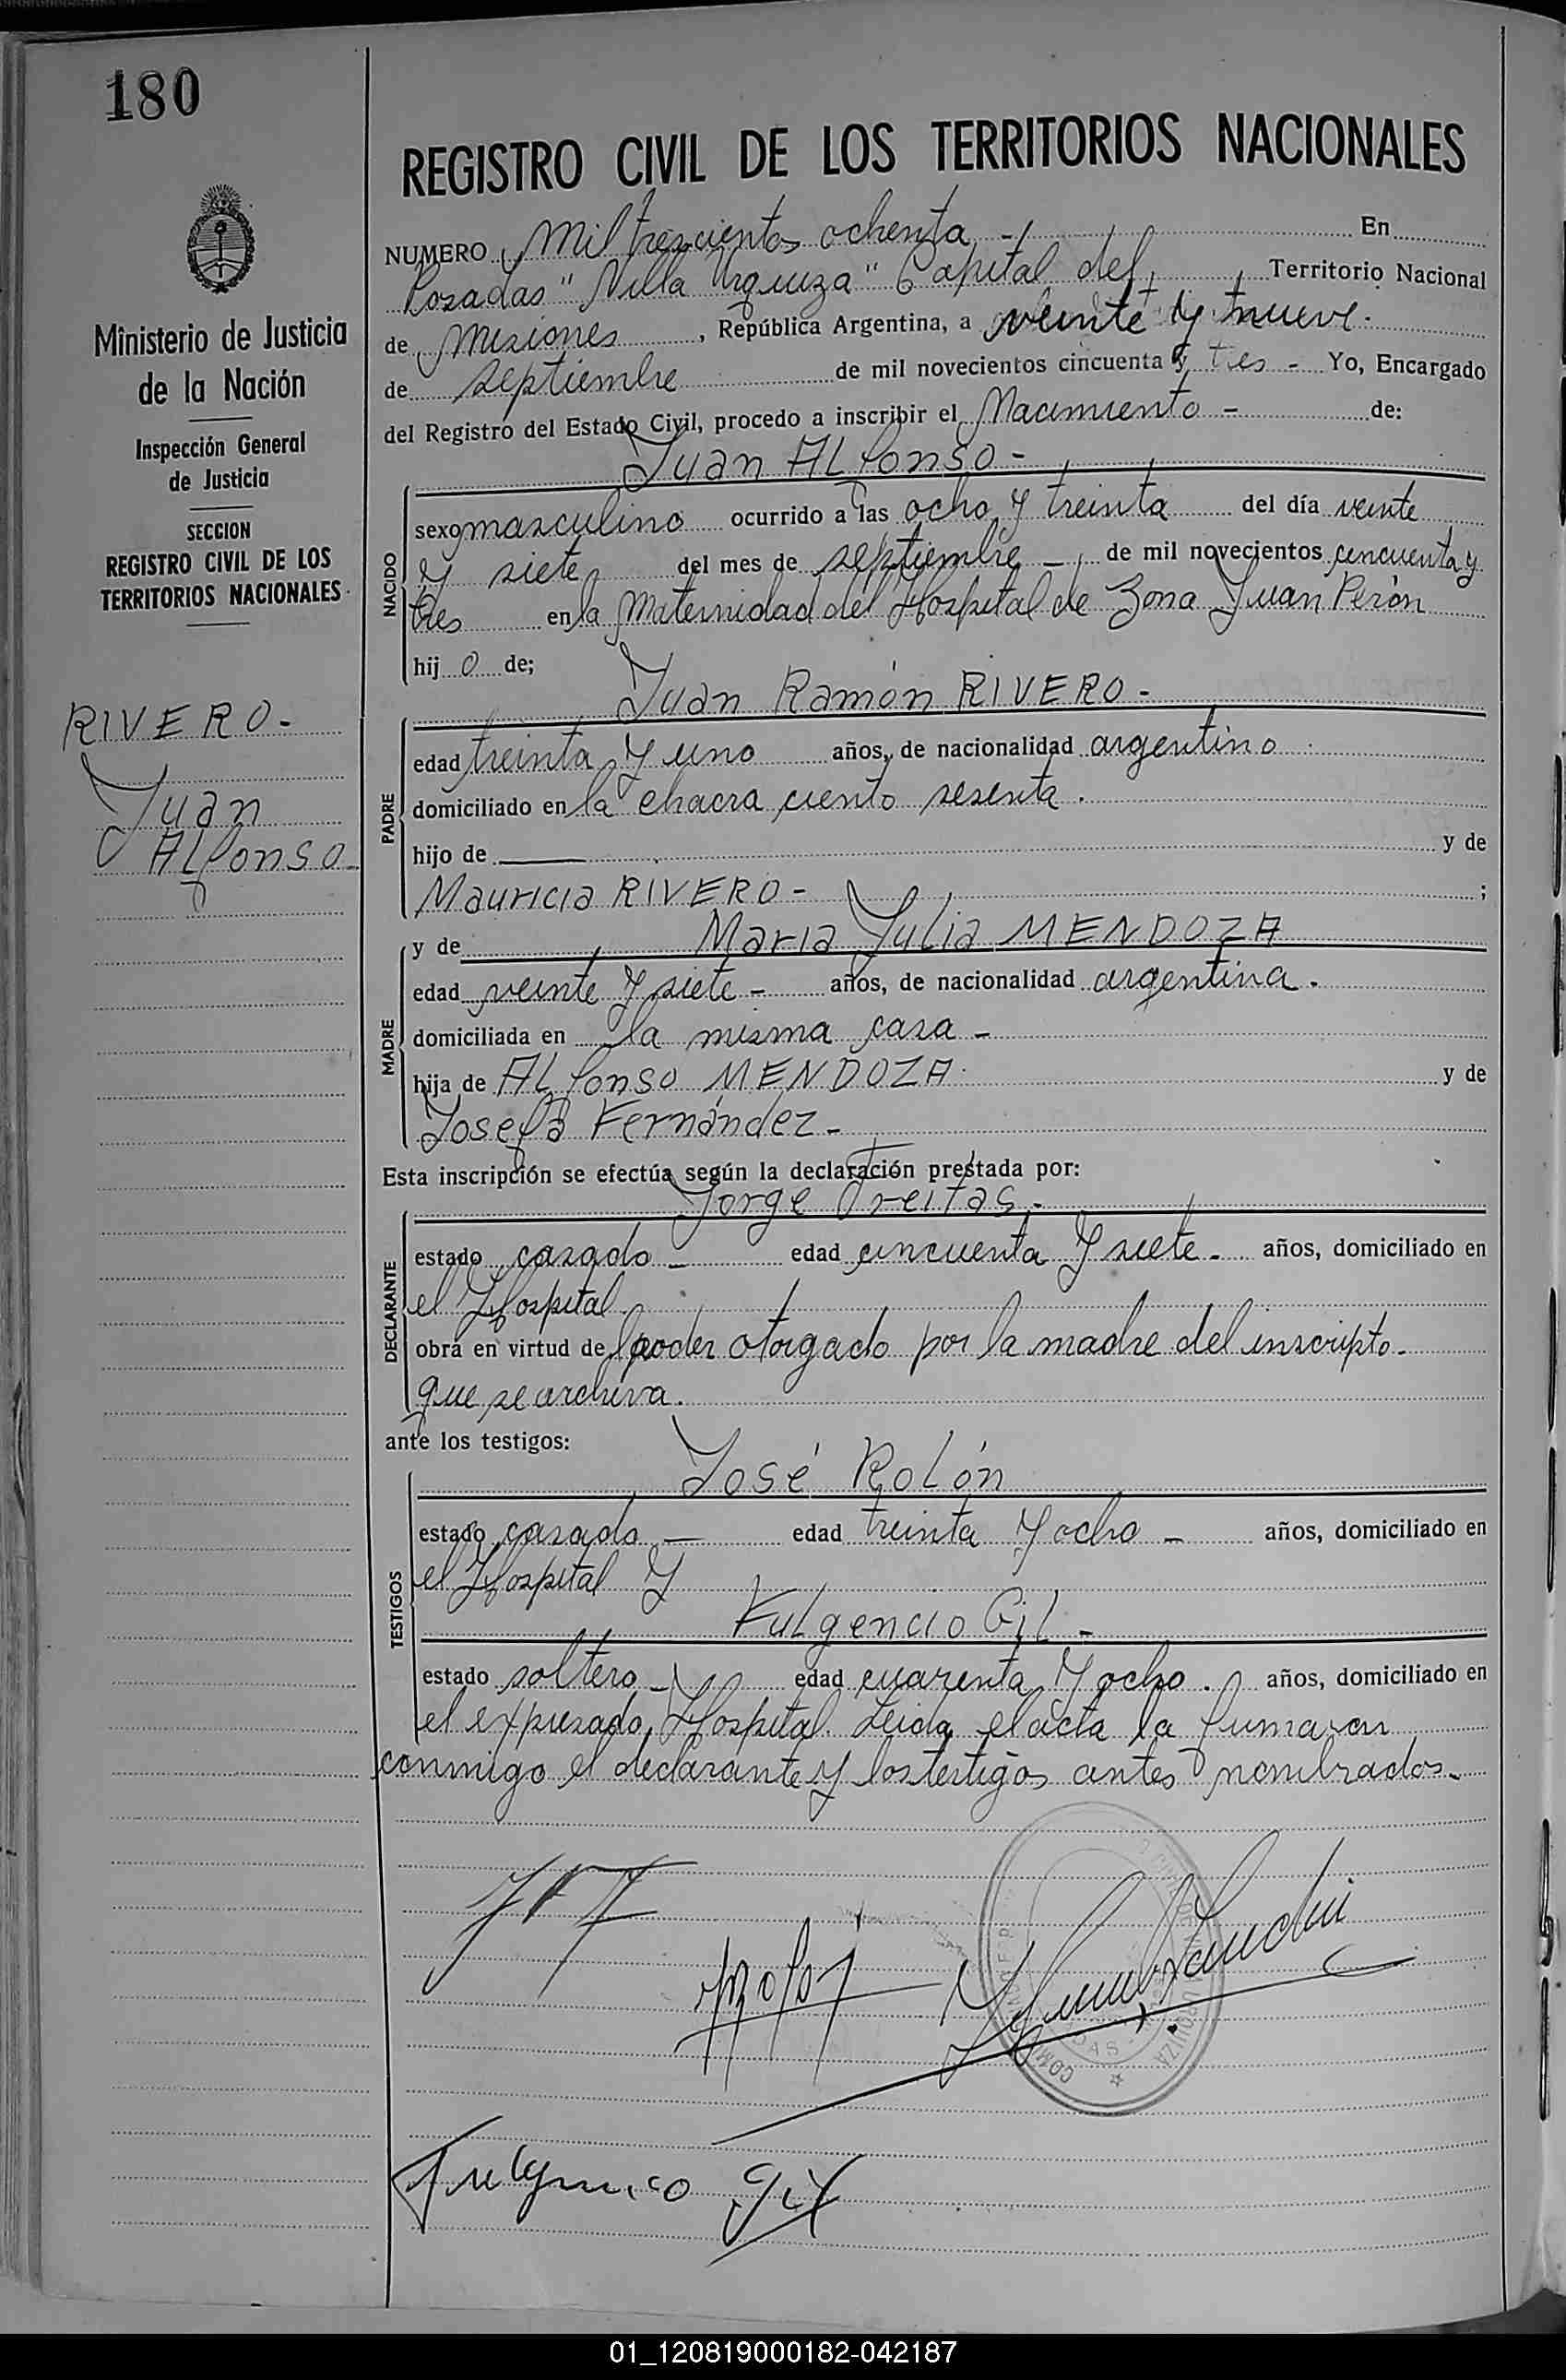 180
Ministerio de Justicia
de la Nación
Inspección General
de Justicia
SECCION
REGISTRO CIVIL DE LOS
TERRITORIOS NACIONALES
RIVERO.-
Juan
ALfonso.
REGISTRO CIVIL DE LOS TERRITORIOS NACIONALES
NUMERO Mil trescientos ochenta -/ En
Posadas "Villa Urquiza" Capital del Territorio Nacional
de Misiones, República Argentina, a veinte y nueve.
de septiembre de mil novecientos cincuenta y tres - Yo, Encargado
del Registro del Estado Civil, procedo a inscribir el Nacimiento - de:
Juan ALfonso -
NACIDO
sexo masculino ocurrido a las ocho y treinta del día veinte
y siete del mes de septiembre - de mil novecientos cincuenta y
tres en la Maternidad del Hospital de Zona Juan Perón
hij o de;
Juan Ramón RIVERO -
PADRE
edad treinta y uno años, de nacionalidad argentino
domiciliado en la chacra ciento sesenta.
hijo de ——— y de
Mauricia RIVERO - ;
y de Maria Julia MENDOZA
MADRE
edad veinte y siete - años, de nacionalidad argentina.
domiciliada en la misma casa -
hija de ALfonso MENDOZA y de
Josefa Fernández -
Esta inscripción se efectúa según la declaración prestada por:
Jorge Freitas.-
DECLARANTE
estado casado - edad cincuenta y siete - años, domiciliado en
el Hospital
obra en virtud de poder otorgado por la madre del inscripto -
que se archiva.
ante los testigos:
José Rolón
TESTIGOS
estado casado - edad treinta y ocho - años, domiciliado en
el Hospital y
Fulgencio Gil -
estado soltero - edad cuarenta y ocho. años, domiciliado en
el expresado Hospital. Leida el acta la firmaron
conmigo el declarante y los testigos antes nombrados.
Fulgencio Gil
01_120819000182-042187